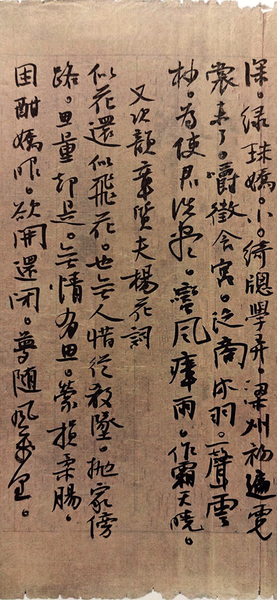 深。綠珠嬌。小。綺牕學弄。梁州初遍霓
裳未了。嚼徵含宮。泛商流羽。一聲雲
杪。為使君洗盡。蠻風瘴雨。作霜天曉。
又次韻章質夫楊花詞
似花還似飛花。也無人惜從教墜。抛家傍
路。思量却是。無情有思。縈損柔腸。
困酣嬌眼。欲開還閉。夢隨風萬里。